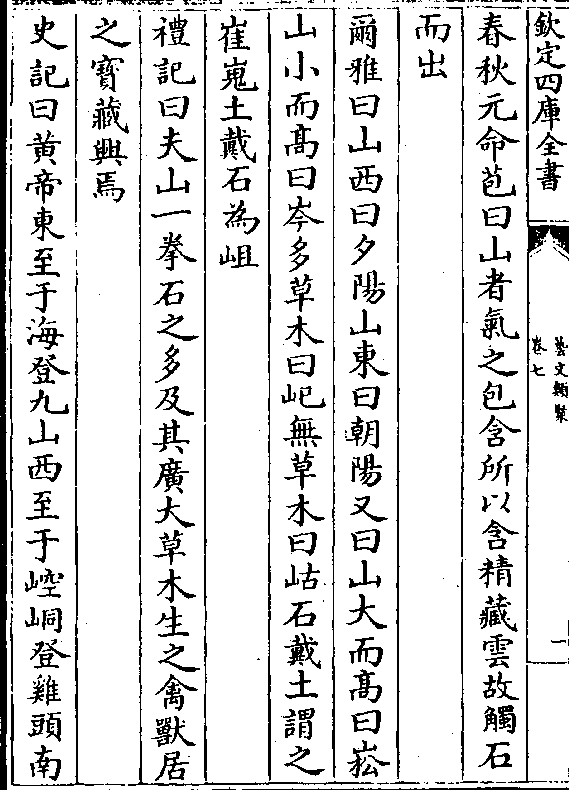 欽定四庫全書
藝文類聚
卷七
一
春秋元命苞曰山者氣之包含所以含精藏雲故觸石
而出
爾雅曰山西曰夕陽山東曰朝陽又曰山大而髙曰崧
山小而髙曰岑多草木曰岯無草木曰岵石戴土謂之
崔嵬土戴石為岨
禮記曰夫山一拳石之多及其廣大草木生之禽獸居
之寳藏興焉
史記曰黄帝東至于海登九山西至于崆峒登雞頭南